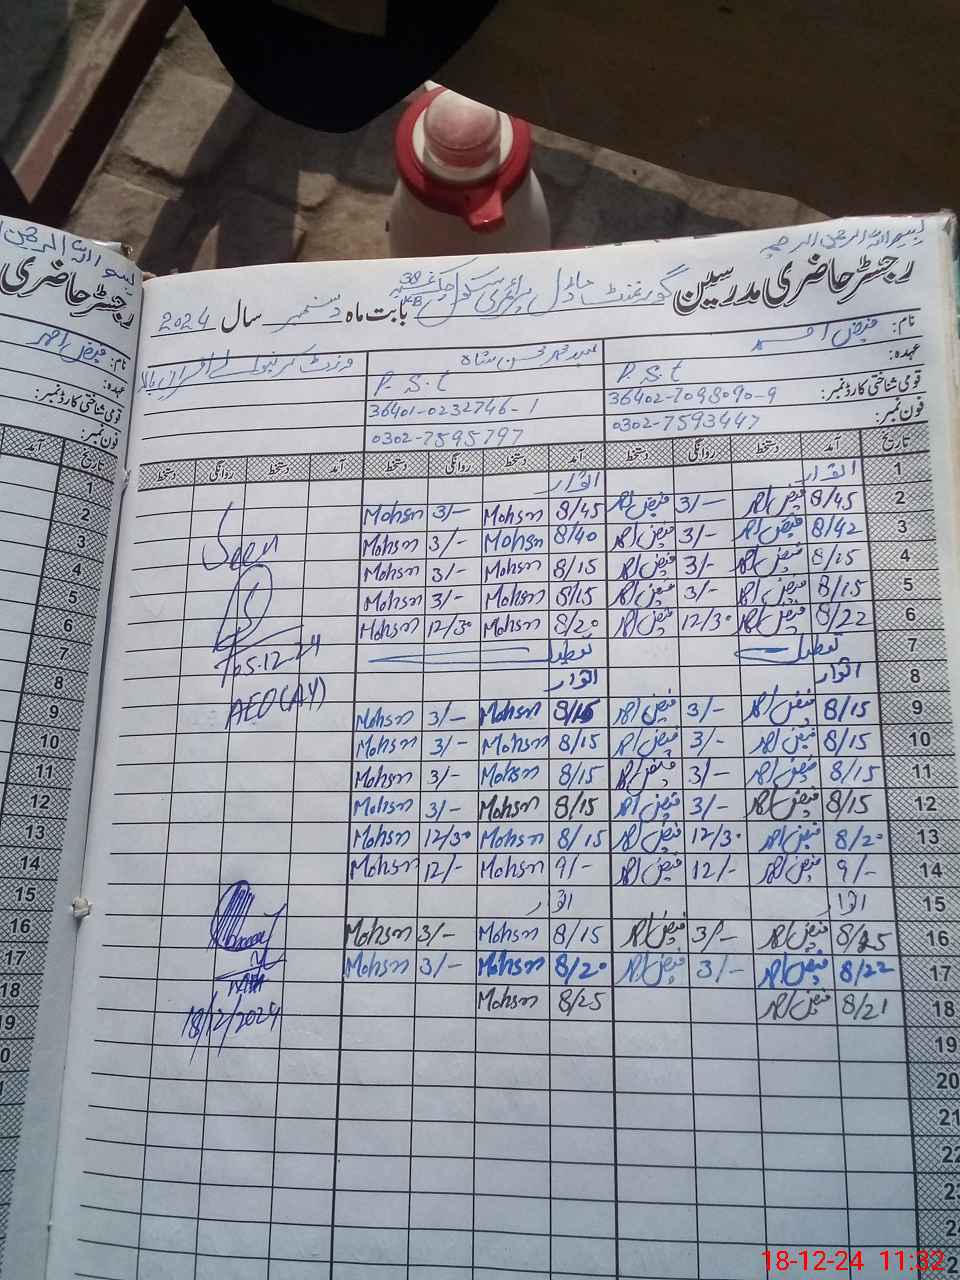 بسم اللہ الرحمن الرحیم
رجسٹر حاضری مدرسین گورنمنٹ ماڈل پرائمری سکول بابت ماہ دسمبر سال 2024
نام: فیض احمد
عہدہ: P.S.t P.S.t
قومی شناختی کارڈ نمبر: 36402-7098090-9 36401-0232746-1
فون نمبر: 0302-7593447 0302-7595797
تاریخ آمد دستخط روانگی دستخط آمد دستخط روانگی دستخط آمد دستخط روانگی دستخط
1 اتوار اتوار
2 8/45 فیض احمد 3/- فیض احمد 8/45 Mohsn 3/- Mohsn
3 8/42 فیض احمد 3/- فیض احمد 8/40 Mohsn 3/- Mohsn
4 8/15 فیض احمد 3/- فیض احمد 8/15 Mohsn 3/- Mohsn
5 8/15 فیض احمد 3/- فیض احمد 8/15 Mohsn 3/- Mohsn
6 8/22 فیض احمد 12/30 فیض احمد 8/20 Mohsn 12/30 Mohsn
7 تعطیل تعطیل
8 اتوار اتوار
9 8/15 فیض احمد 3/- فیض احمد 8/15 Mohsn 3/- Mohsn
10 8/15 فیض احمد 3/- فیض احمد 8/15 Mohsn 3/- Mohsn
11 8/15 فیض احمد 3/- فیض احمد 8/15 Mohsn 3/- Mohsn
12 8/15 فیض احمد 3/- فیض احمد 8/15 Mohsn 3/- Mohsn
13 8/20 فیض احمد 12/30 فیض احمد 8/15 Mohsn 12/30 Mohsn
14 9/- فیض احمد 12/- فیض احمد 9/- Mohsn 12/- Mohsn
15 اتوار اتوار
16 8/25 فیض احمد 3/- فیض احمد 8/15 Mohsn 3/- Mohsn
17 8/22 فیض احمد 3/- فیض احمد 8/20 Mohsn 3/- Mohsn
18 8/21 فیض احمد 8/25 Mohsn
19
20
21
22
Seen
05.12.24
AEO(AY)
18/12/2024
بسم اللہ الرحمن
رجسٹر حاضری
نام: فیض احمد
عہدہ:
قومی شناختی کارڈ نمبر:
فون نمبر:
تاریخ آمد
1
2
3
4
5
6
7
8
9
10
11
12
13
14
15
16
17
18
18-12-24 11:32